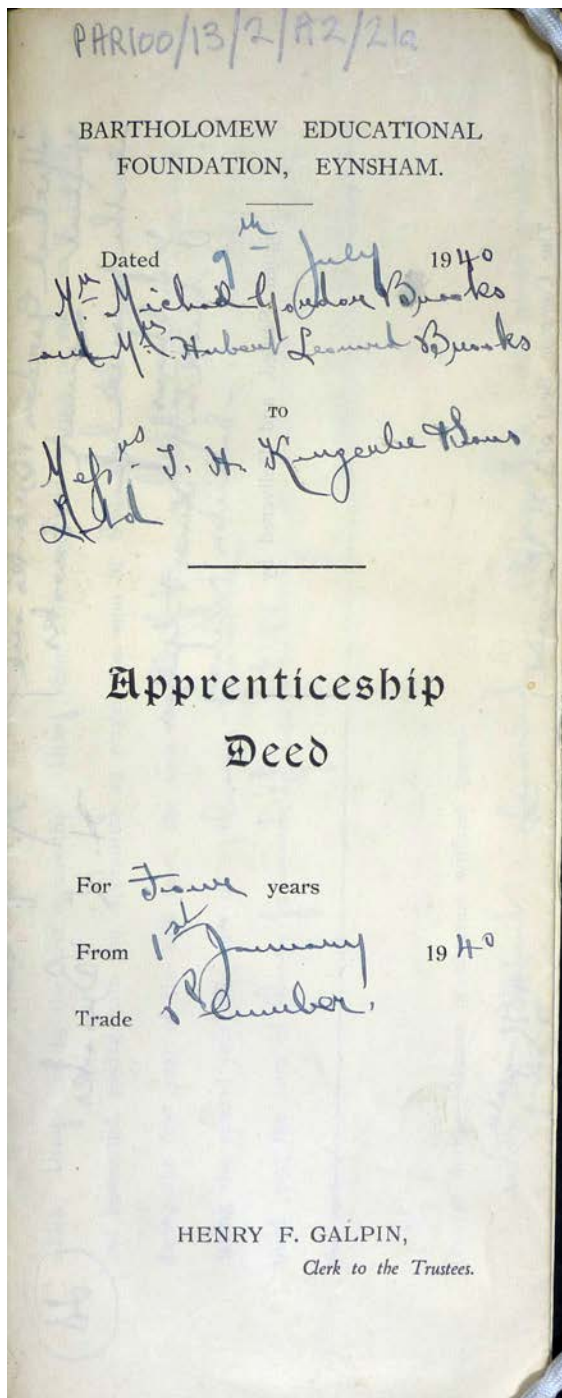 PAR100/13/2/A2/21a
BARTHOLOMEW EDUCATIONAL
FOUNDATION, EYNSHAM.
Dated 9th July 1940
Mr Michael Gordon Brooks
and Mr Hubert Leonard Brooks
TO
Messrs T. H. Kingerlee & Sons
Ltd
Apprenticeship
Deed
For Four years
From 1st January 1940
Trade Plumber.
HENRY F. GALPIN,
Clerk to the Trustees.